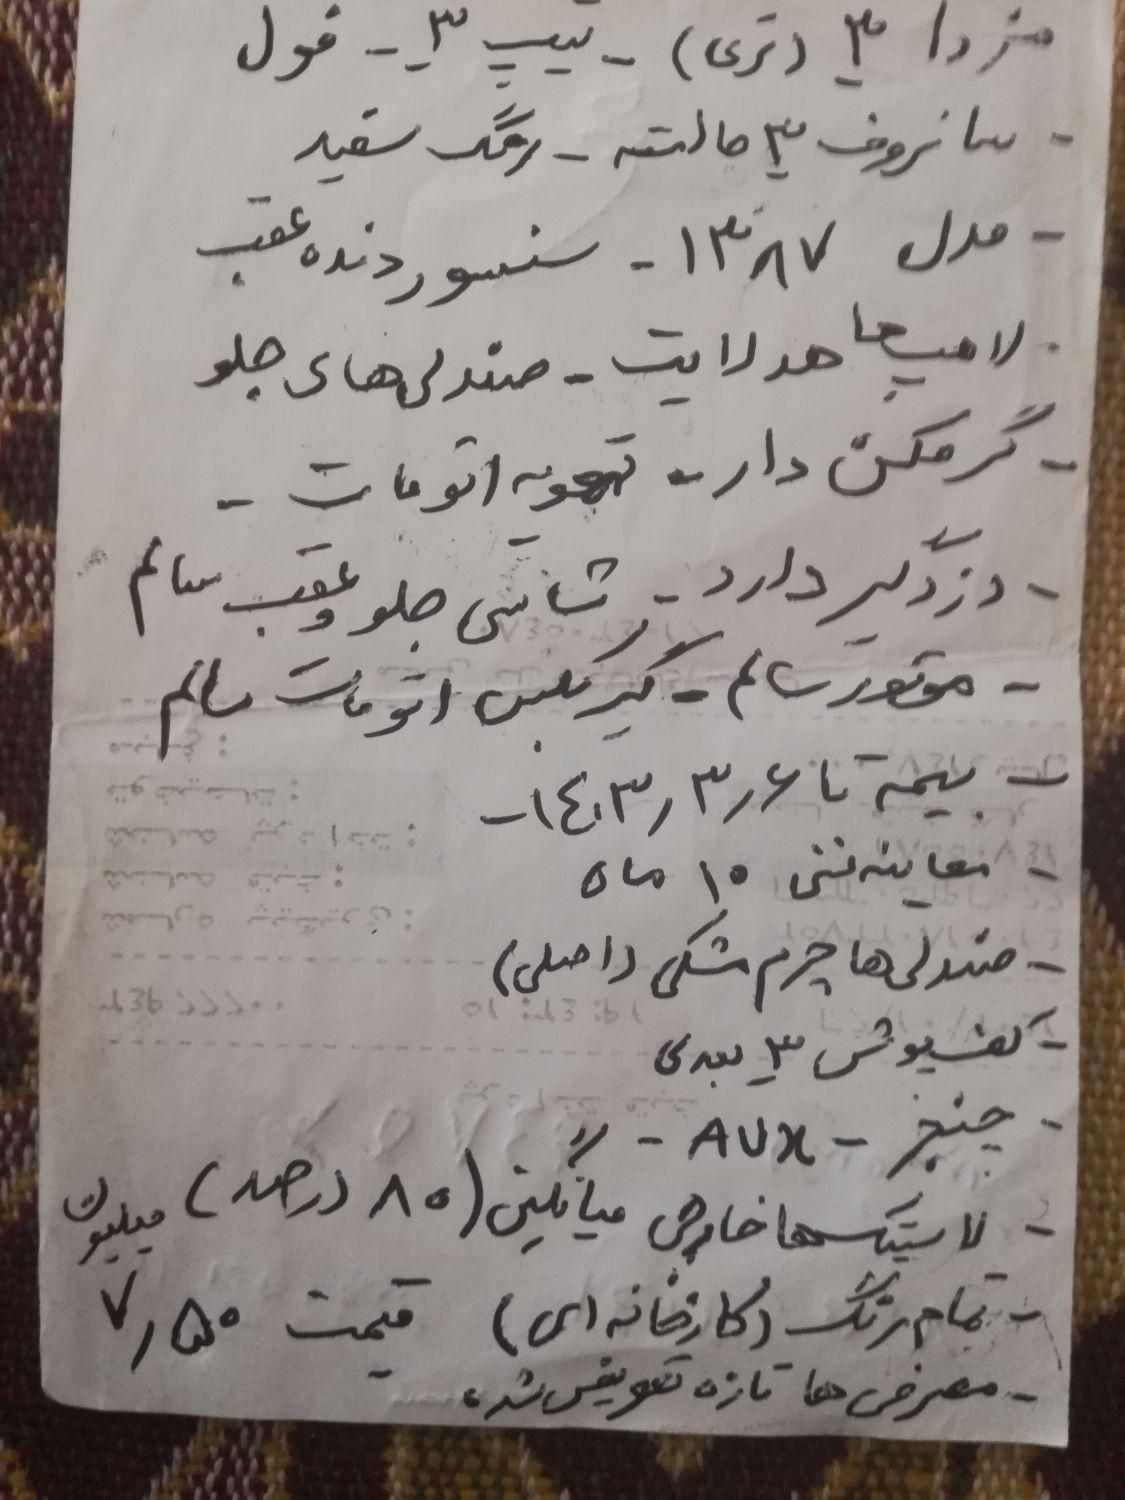 مزدا ۳ (تری) - تیپ ۳ - فول
- سانروف ۳ حالته - رنگ سفید
- مدل ۱۳۸۷ - سنسور دنده عقب
- لامپ‌ها هدلایت - صندلی‌های جلو
- گرمکن دار - تهویه اتومات -
- دزدگیر دارد - شاسی جلو و عقب سالم
- موتور سالم - گیربکس اتومات سالم
- بیمه تا ۱۴۰۳٫۳٫۶ -
- معاینه فنی ۱۰ ماه
- صندلی‌ها چرم مشکی (اصلی)
- کفپوش ۳ بعدی
- چنجر - AUX -
- لاستیک‌ها خارجی میانگین (۸۰ درصد)
- تمام رنگ (کارخانه‌ای) قیمت ۷٫۵۰ میلیون
- مصرفی‌ها تازه تعویض شده